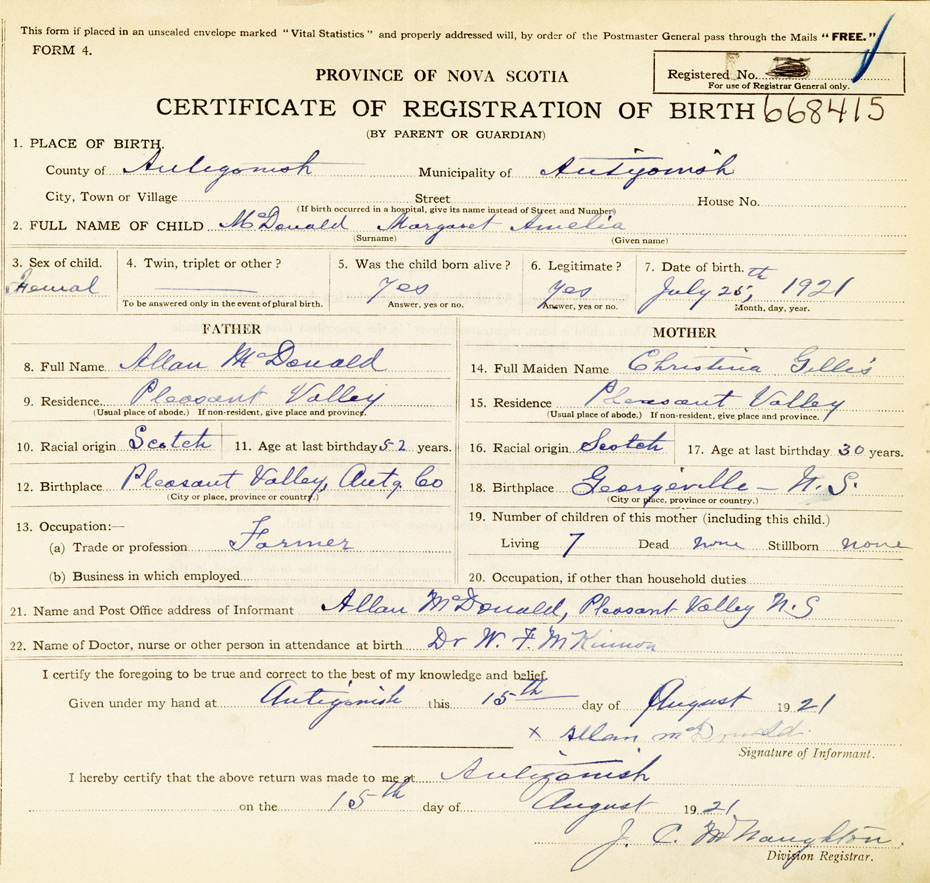 This form if placed in an unsealed envelope marked "Vital Statistics" and properly addressed will, by order of the Postmaster General pass through the Mails "FREE."
FORM 4.
PROVINCE OF NOVA SCOTIA
Registered No.
For use of Registrar General only.
CERTIFICATE OF REGISTRATION OF BIRTH 668415
(BY PARENT OR GUARDIAN)
1. PLACE OF BIRTH.
County of Antigonish Municipality of Antigonish
City, Town or Village Street House No.
(If birth occurred in a hospital, give its name instead of Street and Number)
2. FULL NAME OF CHILD McDonald Margaret Amelia
(Surname) (Given name)
3. Sex of child. 4. Twin, triplet or other? 5. Was the child born alive? 6. Legitimate? 7. Date of birth.
Femal Yes Yes July 25th, 1921
To be answered only in the event of plural birth. Answer, yes or no. Answer, yes or no. Month, day, year.
FATHER MOTHER
8. Full Name Allan McDonald 14. Full Maiden Name Christina Gillis
9. Residence Pleasant Valley 15. Residence Pleasant Valley
(Usual place of abode.) If non-resident, give place and province. (Usual place of abode.) If non-resident, give place and province.
10. Racial origin Scotch 11. Age at last birthday 52 years. 16. Racial origin Scotch 17. Age at last birthday 30 years.
12. Birthplace Pleasant Valley, Antg Co 18. Birthplace Georgeville - N.S.
(City or place, province or country.) (City or place, province or country.)
13. Occupation:— 19. Number of children of this mother (including this child.)
(a) Trade or profession Farmer Living 7 Dead none Stillborn none
(b) Business in which employed 20. Occupation, if other than household duties
21. Name and Post Office address of Informant Allan McDonald, Pleasant Valley N.S
22. Name of Doctor, nurse or other person in attendance at birth Dr W. F. McKinnon
I certify the foregoing to be true and correct to the best of my knowledge and belief.
Given under my hand at Antigonish this 15th day of August 1921
x Allan McDonald
Signature of Informant.
I hereby certify that the above return was made to me at Antigonish
on the 15th day of August 1921
J. C. McNaughton
Division Registrar.